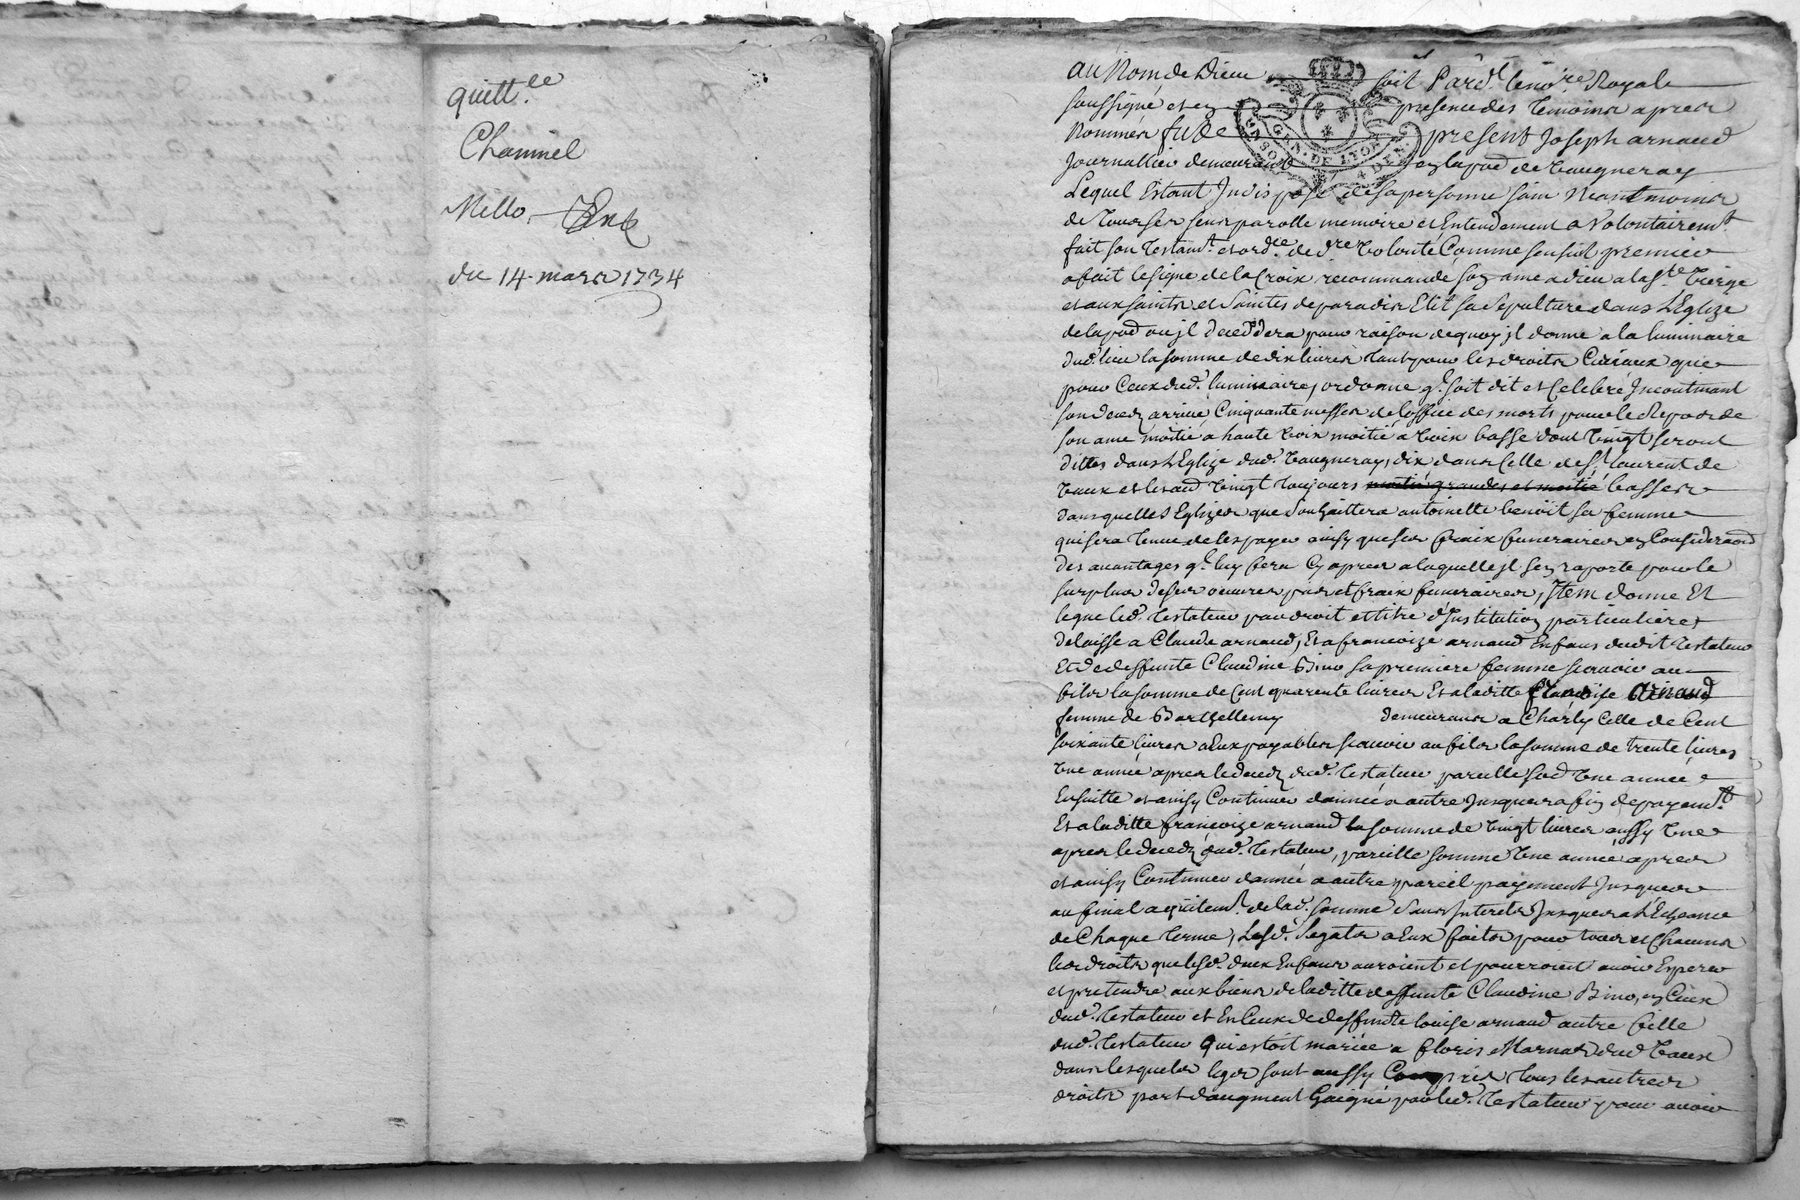 quitt.ce
Chamüel
Mello,
du 14 mars 1734
au Nom de Dieu soit Pard.t le no.re Royal
soussigné et en presence des temoins apres
Nommés fut present Joseph arnaud
Journallier demeurant en la pad de Vaugneray
Lequel Estant Indisposé de sa personne sain Neantmoins
de tous ses sens parolle memoire et Entendement a Volontairem.t
fait son testam.t et ord.ce de d.re Volonté Comme sensuit premier
a fait le signe de la Croix recommandé son ame a dieu a la s.te Vierge
et aux saints et saintes de paradis Elit sa sepulture dans L'Eglize
de la pad ou jl deceddera pour raison de quoy jl donne a la luminaire
dud. lieu la somme de dix livres tant pour les droits Curiaux que
pour Ceux dud. luminaire, ordonne q.l soit dit et Celebré Incontinant
son deceds arrivé Cinquante messes de l'office des morts pour le Repos de
son ame moitié a haute Voix moitié a Voix basse dont Vingt seront
dittes dans L'Eglize dud. Vaugneray, dix dans Celle de s.t laurent de
Vaux et les aud Vingt toujours moitié grandes et moitié basses
dans quelles Eglizes que souhaittera antoinette benoît sa femme
qui sera tenue de les payer ainsy que ses fraix funeraires en Considerãon
des avantages q.l luy fera Cy apres a laquelle jl sen raporte pour le
surplus de ses oeuvres pies et fraix funeraires, Item donne Et
legue led. testateur par droit et titre d'Institution particuliere
delaisse a Claude arnaud, Et a francoize arnaud Enfans dudit testateur
Et de deffunte Claudine Bino sa premiere femme scavoir au
fils la somme de Cent quarente livres Et a laditte francoise Arnaud
femme de Barthellemy demeurans a Charly Celle de Cent
soixante livres a Eux payables scavoir au fils la somme de trente livres
Une année apres le deceds dud. testateur pareille sod Une année
Ensuitte et ainsy Continuer d'année a autre Jusques a fin de payem.t
Et a laditte francoize arnaud la somme de Vingt livres aussy Une
apres le deceds dud. testateur, pareille somme Une année apres
et ainsy Continuer d'année a autre pareil payement Jusques
au final aquitem.t de lad. somme sans Interets Jusques a L'Echeance
de Chaque terme, Lesd. Legats a Eux faits pour tous et Chacuns
les droits que lesd. deux Enfans auroient et pourroient avoir Esperer
et pretendre aux biens de laditte deffunte Claudine Bino, en Ceux
dud. testateur et En Ceux de deffunte louise arnaud autre fille
dud. testateur qui estoit mariée a floris Marnas dud Vaux
dans lesquels legs sont aussy Compris tous les autres
droits part d'augment Gaigné par led. testateur pour avoir